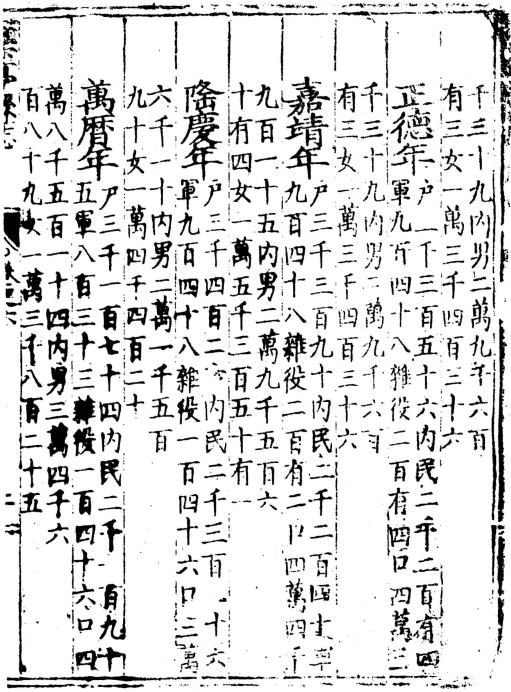 千三十九内男二萬九千六百
有三女一萬三千四百三十六
正德年戶三千三百五十六内民二千二百有四
軍九百四十八雜役二百有四口四萬三
千三十九内男二萬九千六百
有三女一萬三千四百三十六
嘉靖年戶三千三百九十内民二千二百四十
軍九百四十八雜役二百有二口四萬四千
九百一十五内男二萬九千五百六
十有四女一萬五千三百五十有一
隆慶年戶三千四百二内民二千三百一十六
軍九百四十八雜役一百四十六口三萬
六千一十内男二萬一千五百
九十女一萬四千四百二十
萬曆年戶三千一百七十四内民二千一百九十
五軍八百三十三雜役一百四十六口四
萬八千五百一十四内男三萬四千六
百八十九女一萬三千八百二十五